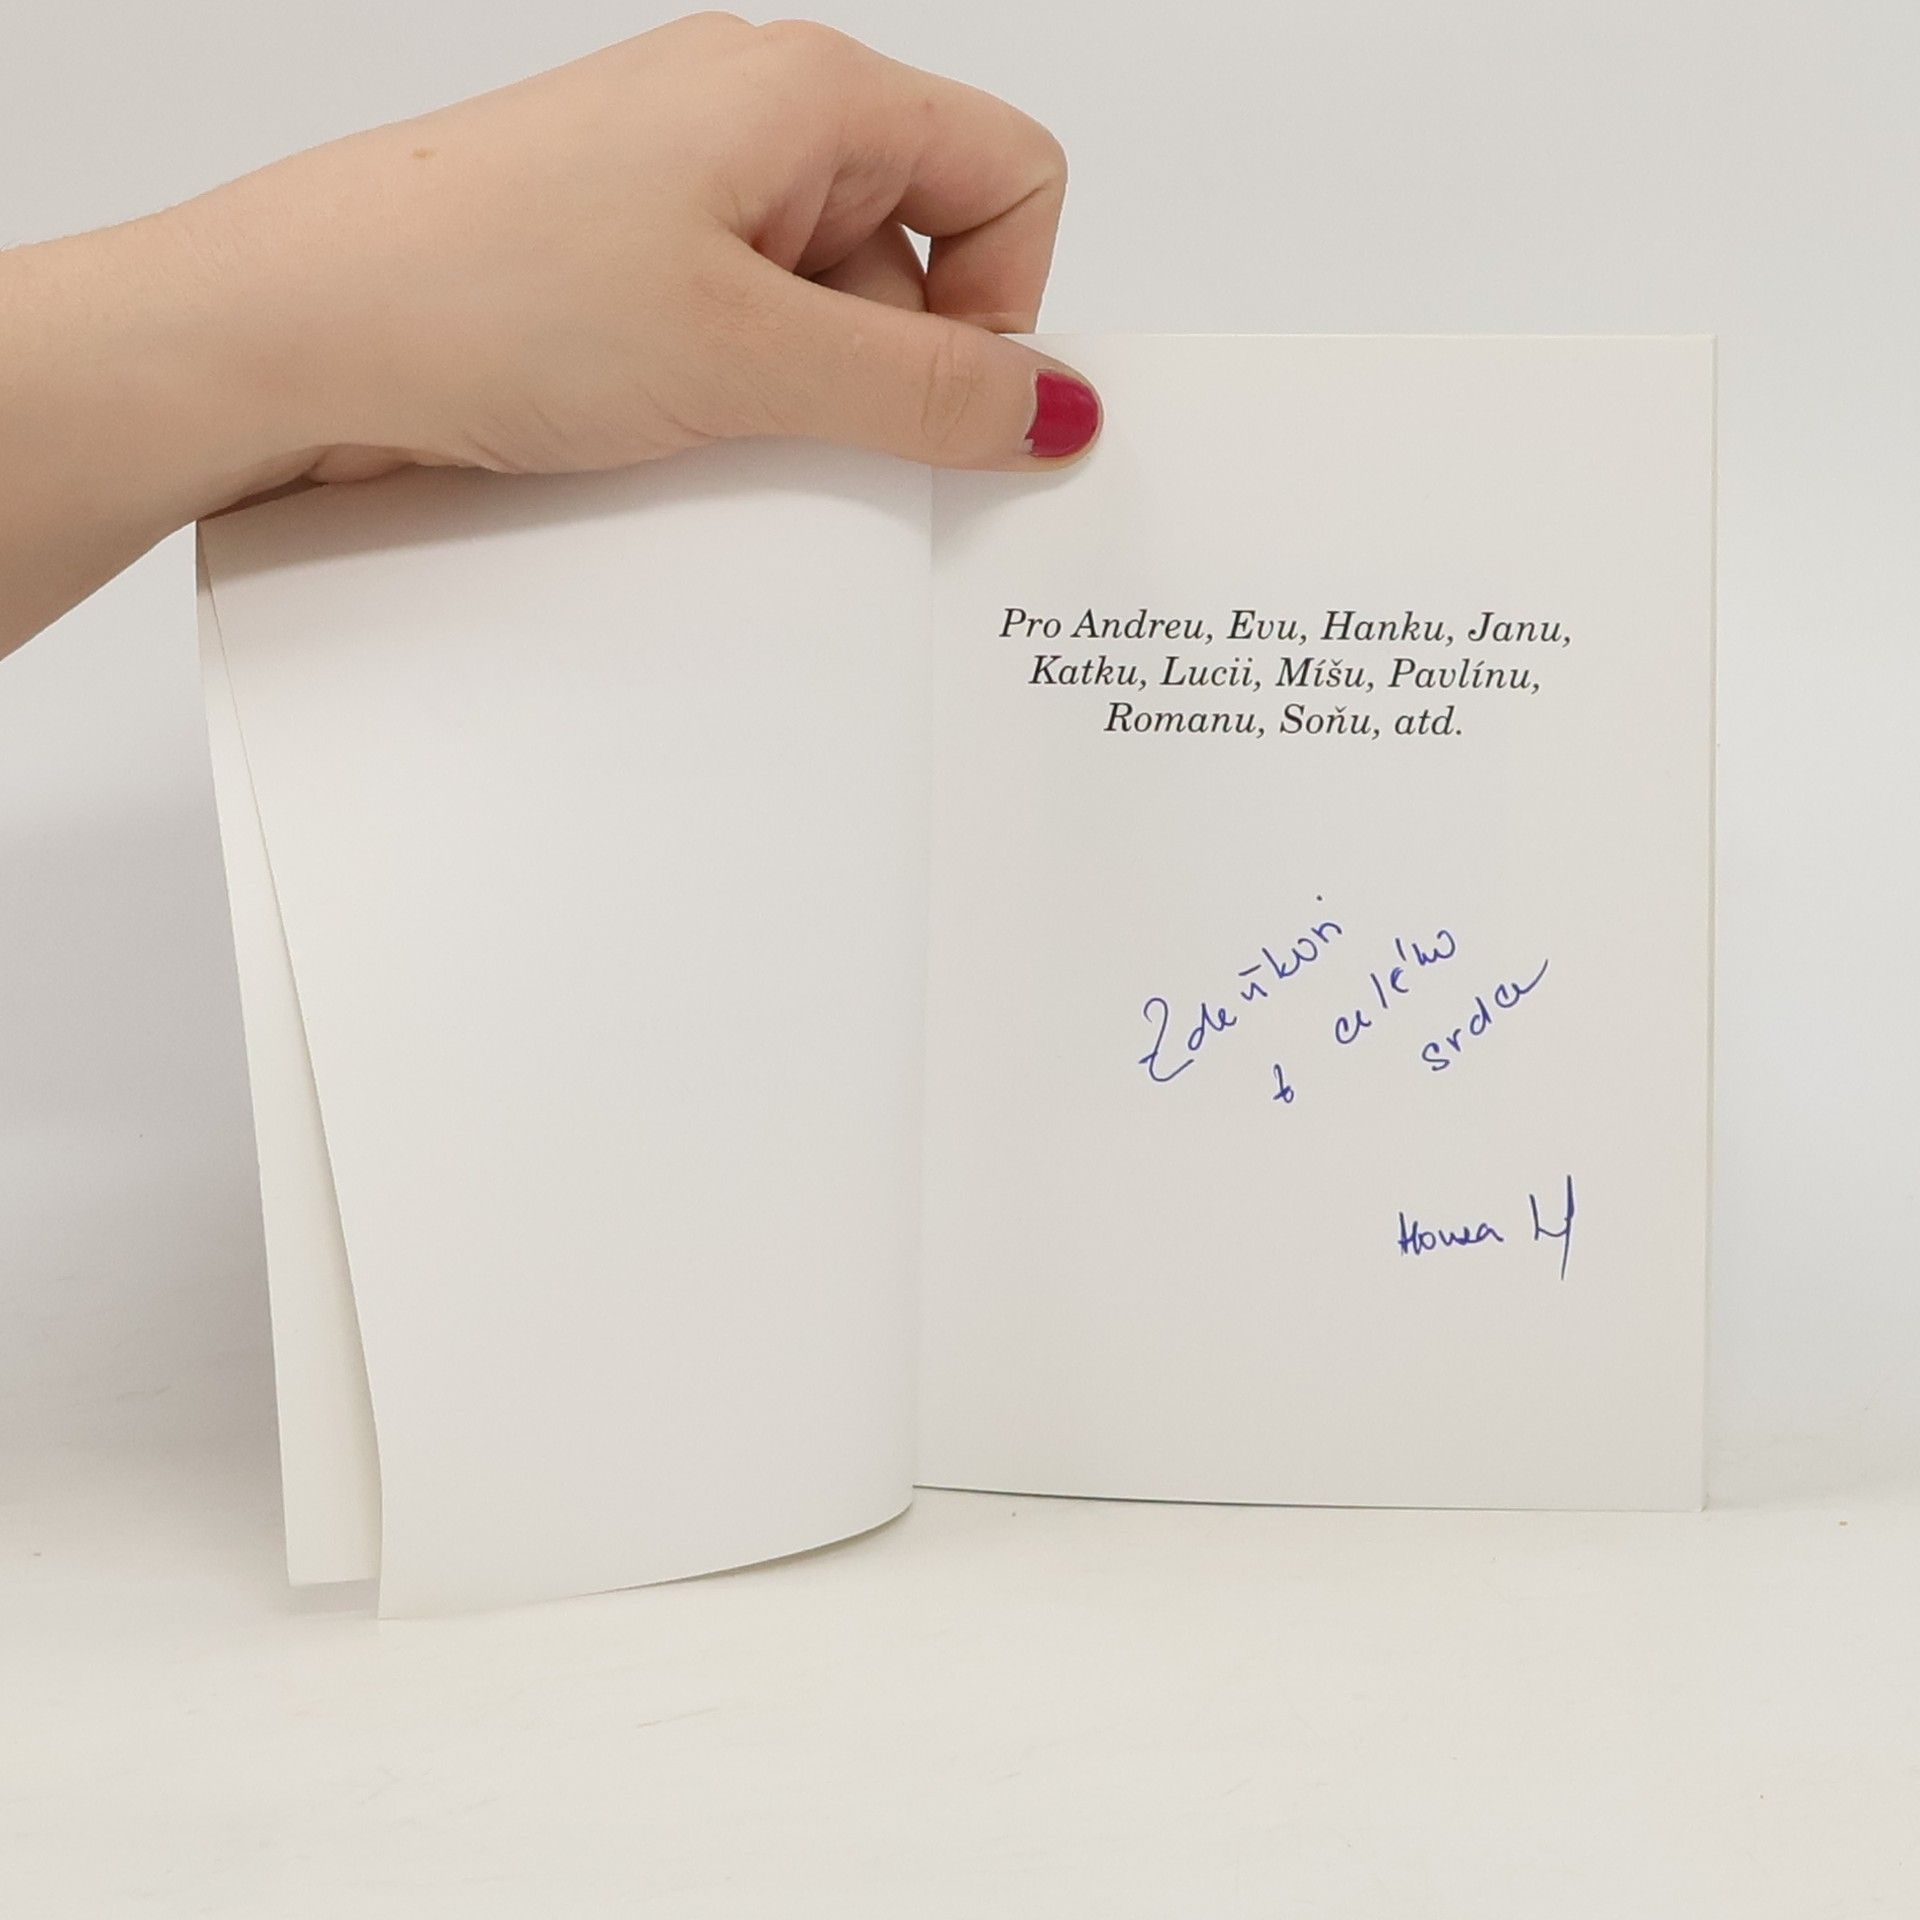 Pro Andreu, Evu, Hanku, Janu,
Katku, Lucii, Míšu, Pavlínu,
Romanu, Soňu, atd.
Zdeňkovi
z celého
srdce